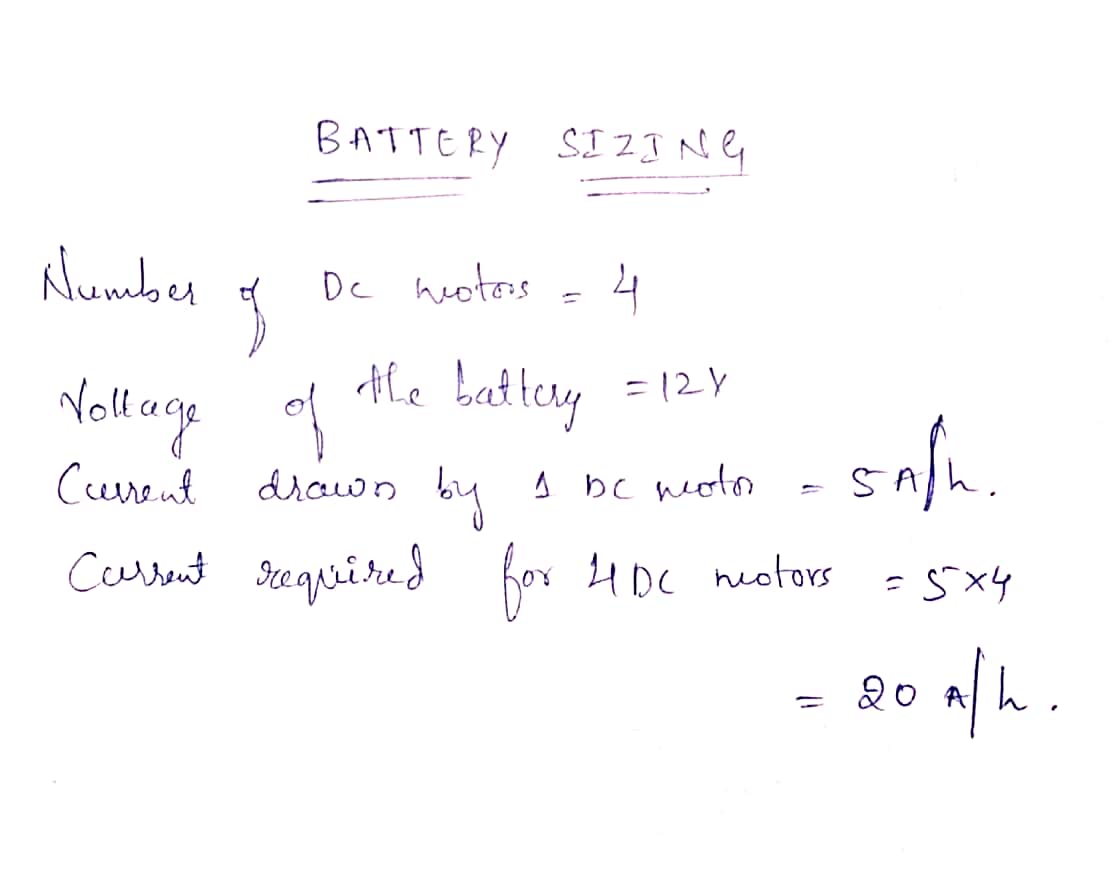 BATTERY SIZING
Number of DC motors = 4
Voltage of the battery = 12V
Current drawn by 1 DC motor = 5 A/h.
Current required for 4 DC motors = 5×4
= 20 A/h.